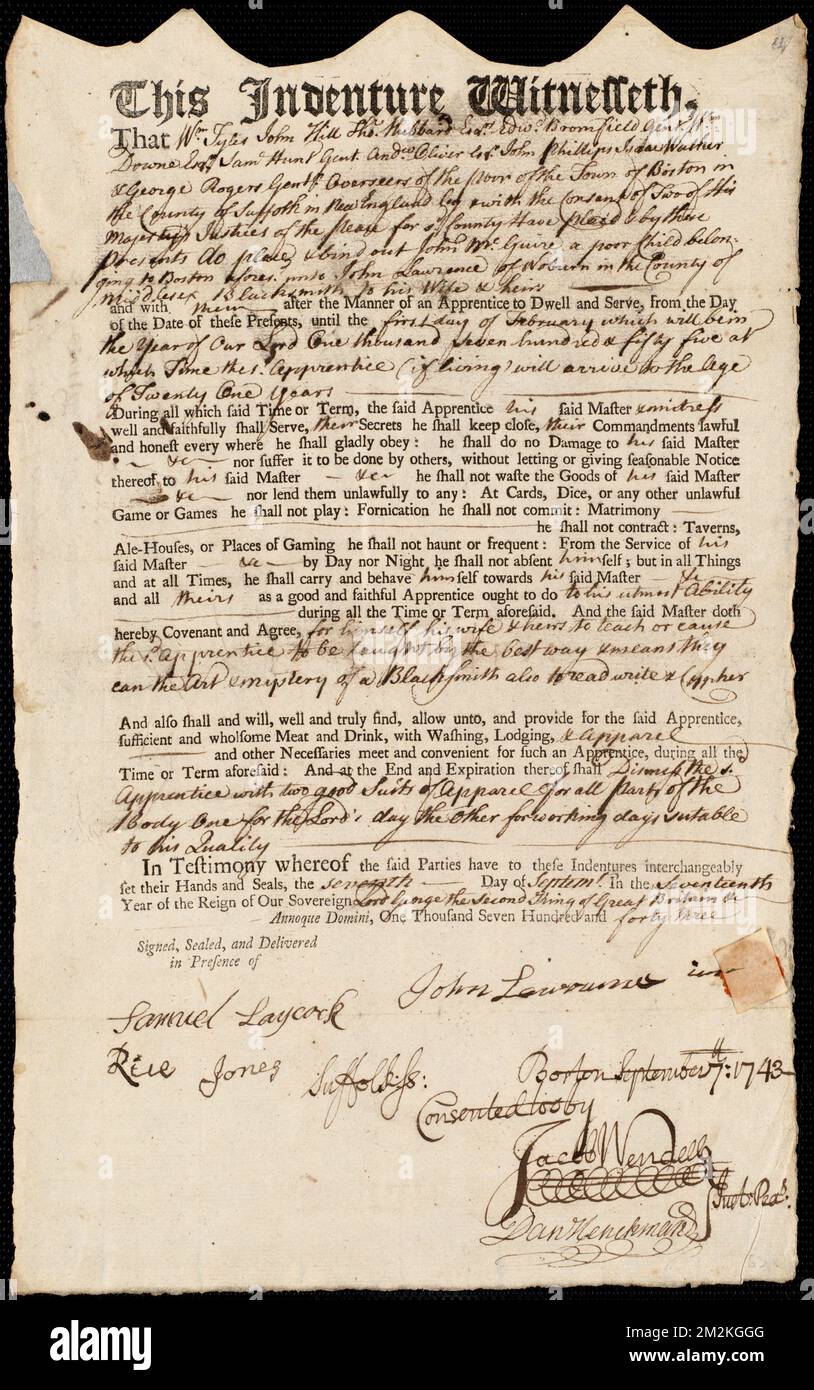 This Indenture Witnesseth,
That Wm Tyler John Hill Thos Hubbard Esqrs Edwd Bromfield Gent. Wm
Downe Esqr Saml Hunt Gent. Andrw Oliver Esqr John Phillips Isaac Walker
& George Rogers Gentn Overseers of the Poor of the Town of Boston in
the County of Suffolk in New England by & with the consent of Two of His
Majesty's Justices of the Peace for sd County Have placed & by these
Presents do place & bind out John Mc Guire a poor Child belon-
ging to Boston aforesd unto John Lawrence of Woburn in the County of
Middlesex Blacksmith to his Wife & heirs
and with them after the Manner of an Apprentice to Dwell and Serve, from the Day
of the Date of these Presents, until the first day of February which will be in
the Year of Our Lord One thousand seven hundred & fifty five at
which Time the sd Apprentice (if living) will arrive to the Age
of Twenty One years
During all which said Time or Term, the said Apprentice his said Master & mistress
well and faithfully shall Serve, their Secrets he shall keep close, their Commandments lawful
and honest every where he shall gladly obey: he shall do no Damage to his said Master
&c nor suffer it to be done by others, without letting or giving seasonable Notice
thereof to his said Master &c he shall not waste the Goods of his said Master
&c nor lend them unlawfully to any: At Cards, Dice, or any other unlawful
Game or Games he shall not play: Fornication he shall not commit: Matrimony
he shall not contract: Taverns,
Ale-Houses, or Places of Gaming he shall not haunt or frequent: From the Service of his
said Master &c by Day nor Night he shall not absent himself; but in all Things
and at all Times, he shall carry and behave himself towards his said Master &c
and all theirs as a good and faithful Apprentice ought to do to his utmost Ability
during all the Time or Term aforesaid. And the said Master doth
hereby Covenant and Agree, for himself his wife & heirs to teach or cause
the sd Apprentice to be taught by the best way & means they
can the Art & mystery of a Blacksmith also to read write & Cypher
And also shall and will, well and truly find, allow unto, and provide for the said Apprentice,
sufficient and wholsome Meat and Drink, with Washing, Lodging, & Apparel
and other Necessaries meet and convenient for such an Apprentice, during all the
Time or Term aforesaid: And at the End and Expiration thereof shall Dismiss the sd
Apprentice with two good Suits of Apparel for all Parts of the
Body One for the Lord's day the other for working days suitable
to his Quality
In Testimony whereof the said Parties have to these Indentures interchangeably
set their Hands and Seals, the seventh Day of Septemr In the Seventeenth
Year of the Reign of Our Sovereign Lord George the Second King of Great Britain &c
Annoque Domini, One Thousand Seven Hundred and forty three
Signed, Sealed, and Delivered
in Presence of
John Lawrance iur
Samuel Laycock
Rice Jones Suffolk ss: Boston September 7th: 1743
Consented to by
Jacob Wendell
Justs: Peace
Dan Henchman
alamy
Image ID: 2M2KGGG
www.alamy.com